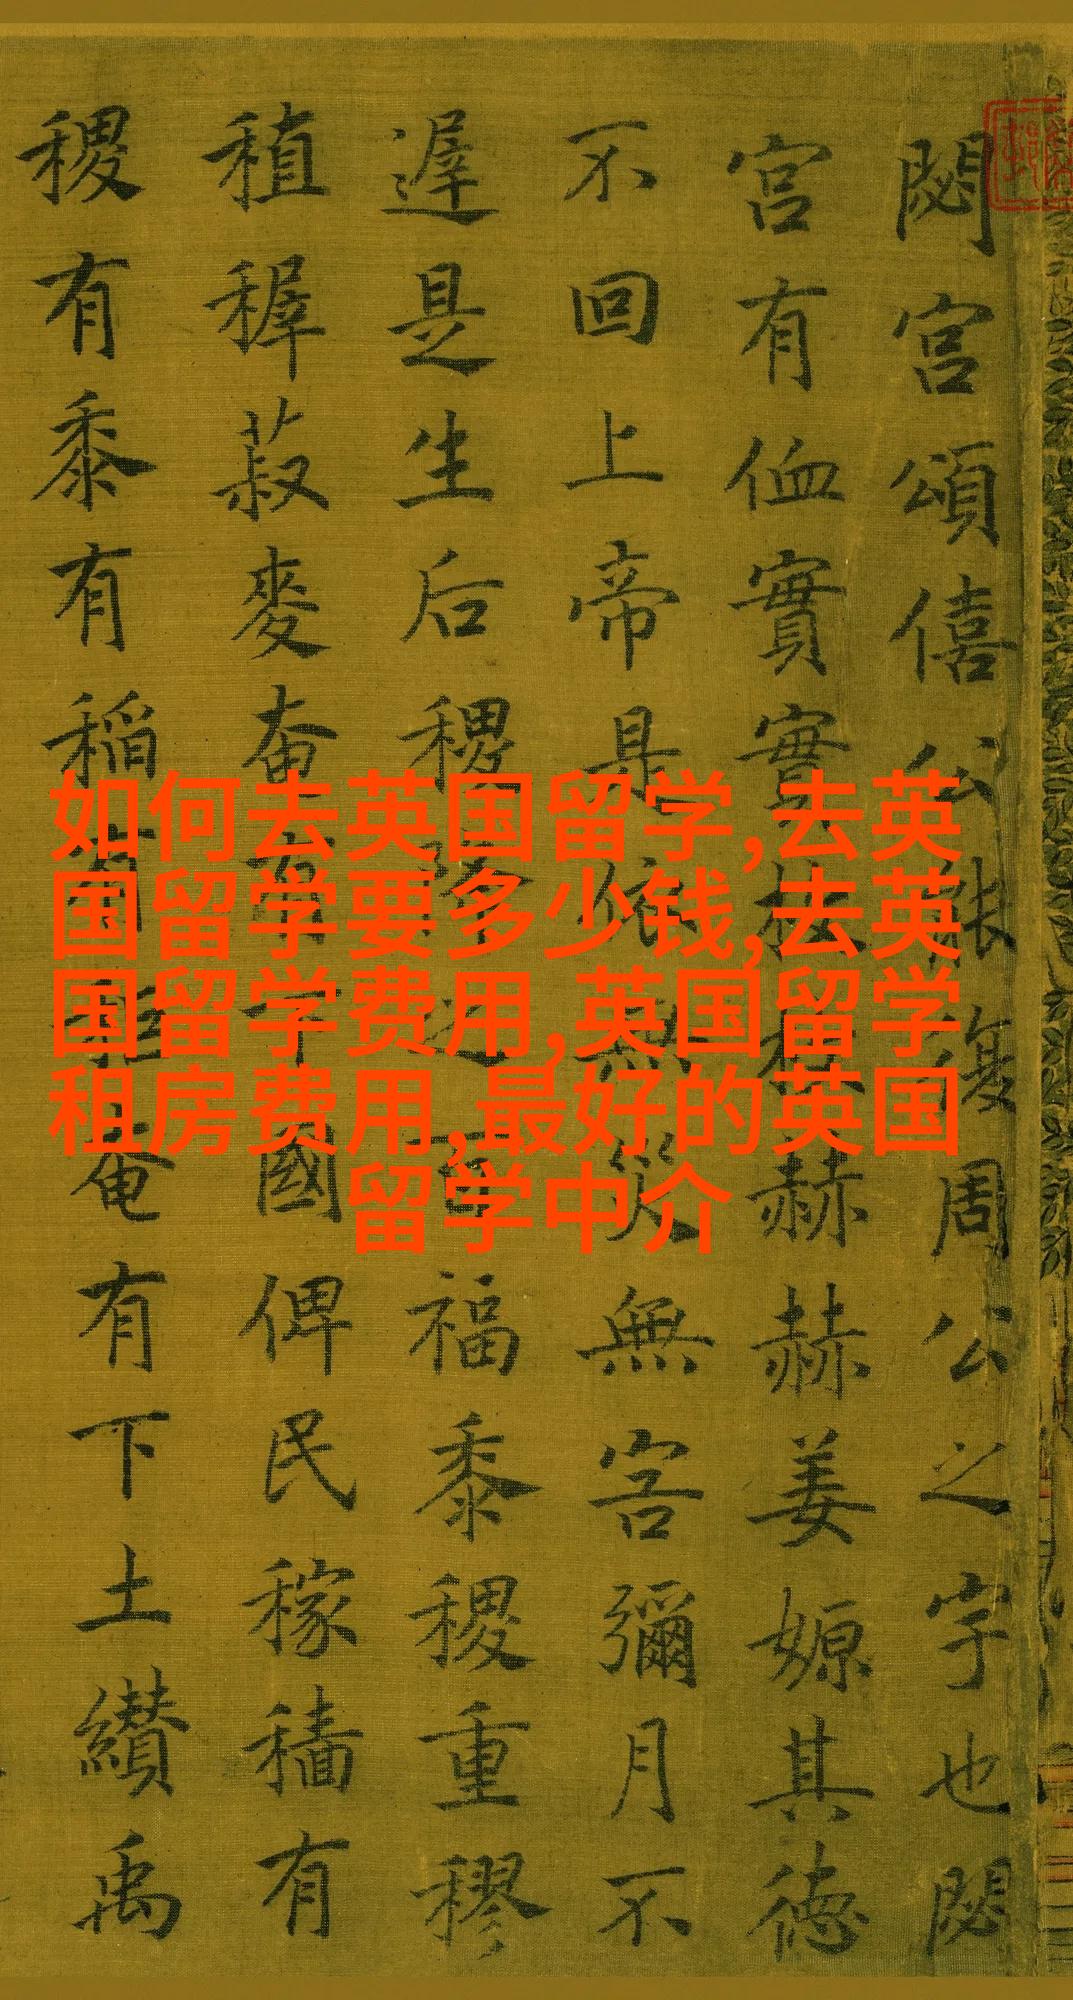 如何去英国留学,去英
国留学要多少钱,去英
国留学费用,英国留学
租房费用,最好的英国
留学中介
閟宮頌僖公能復周公之宇也閟
宮有侐實實枚枚赫赫姜嫄其德
不回上帝是依無災無害彌月不
遟是生后稷降之百福黍稷重穋
稙稺菽麥奄有下國俾民稼穡有
稷有黍有稻有秬奄有下土纘禹